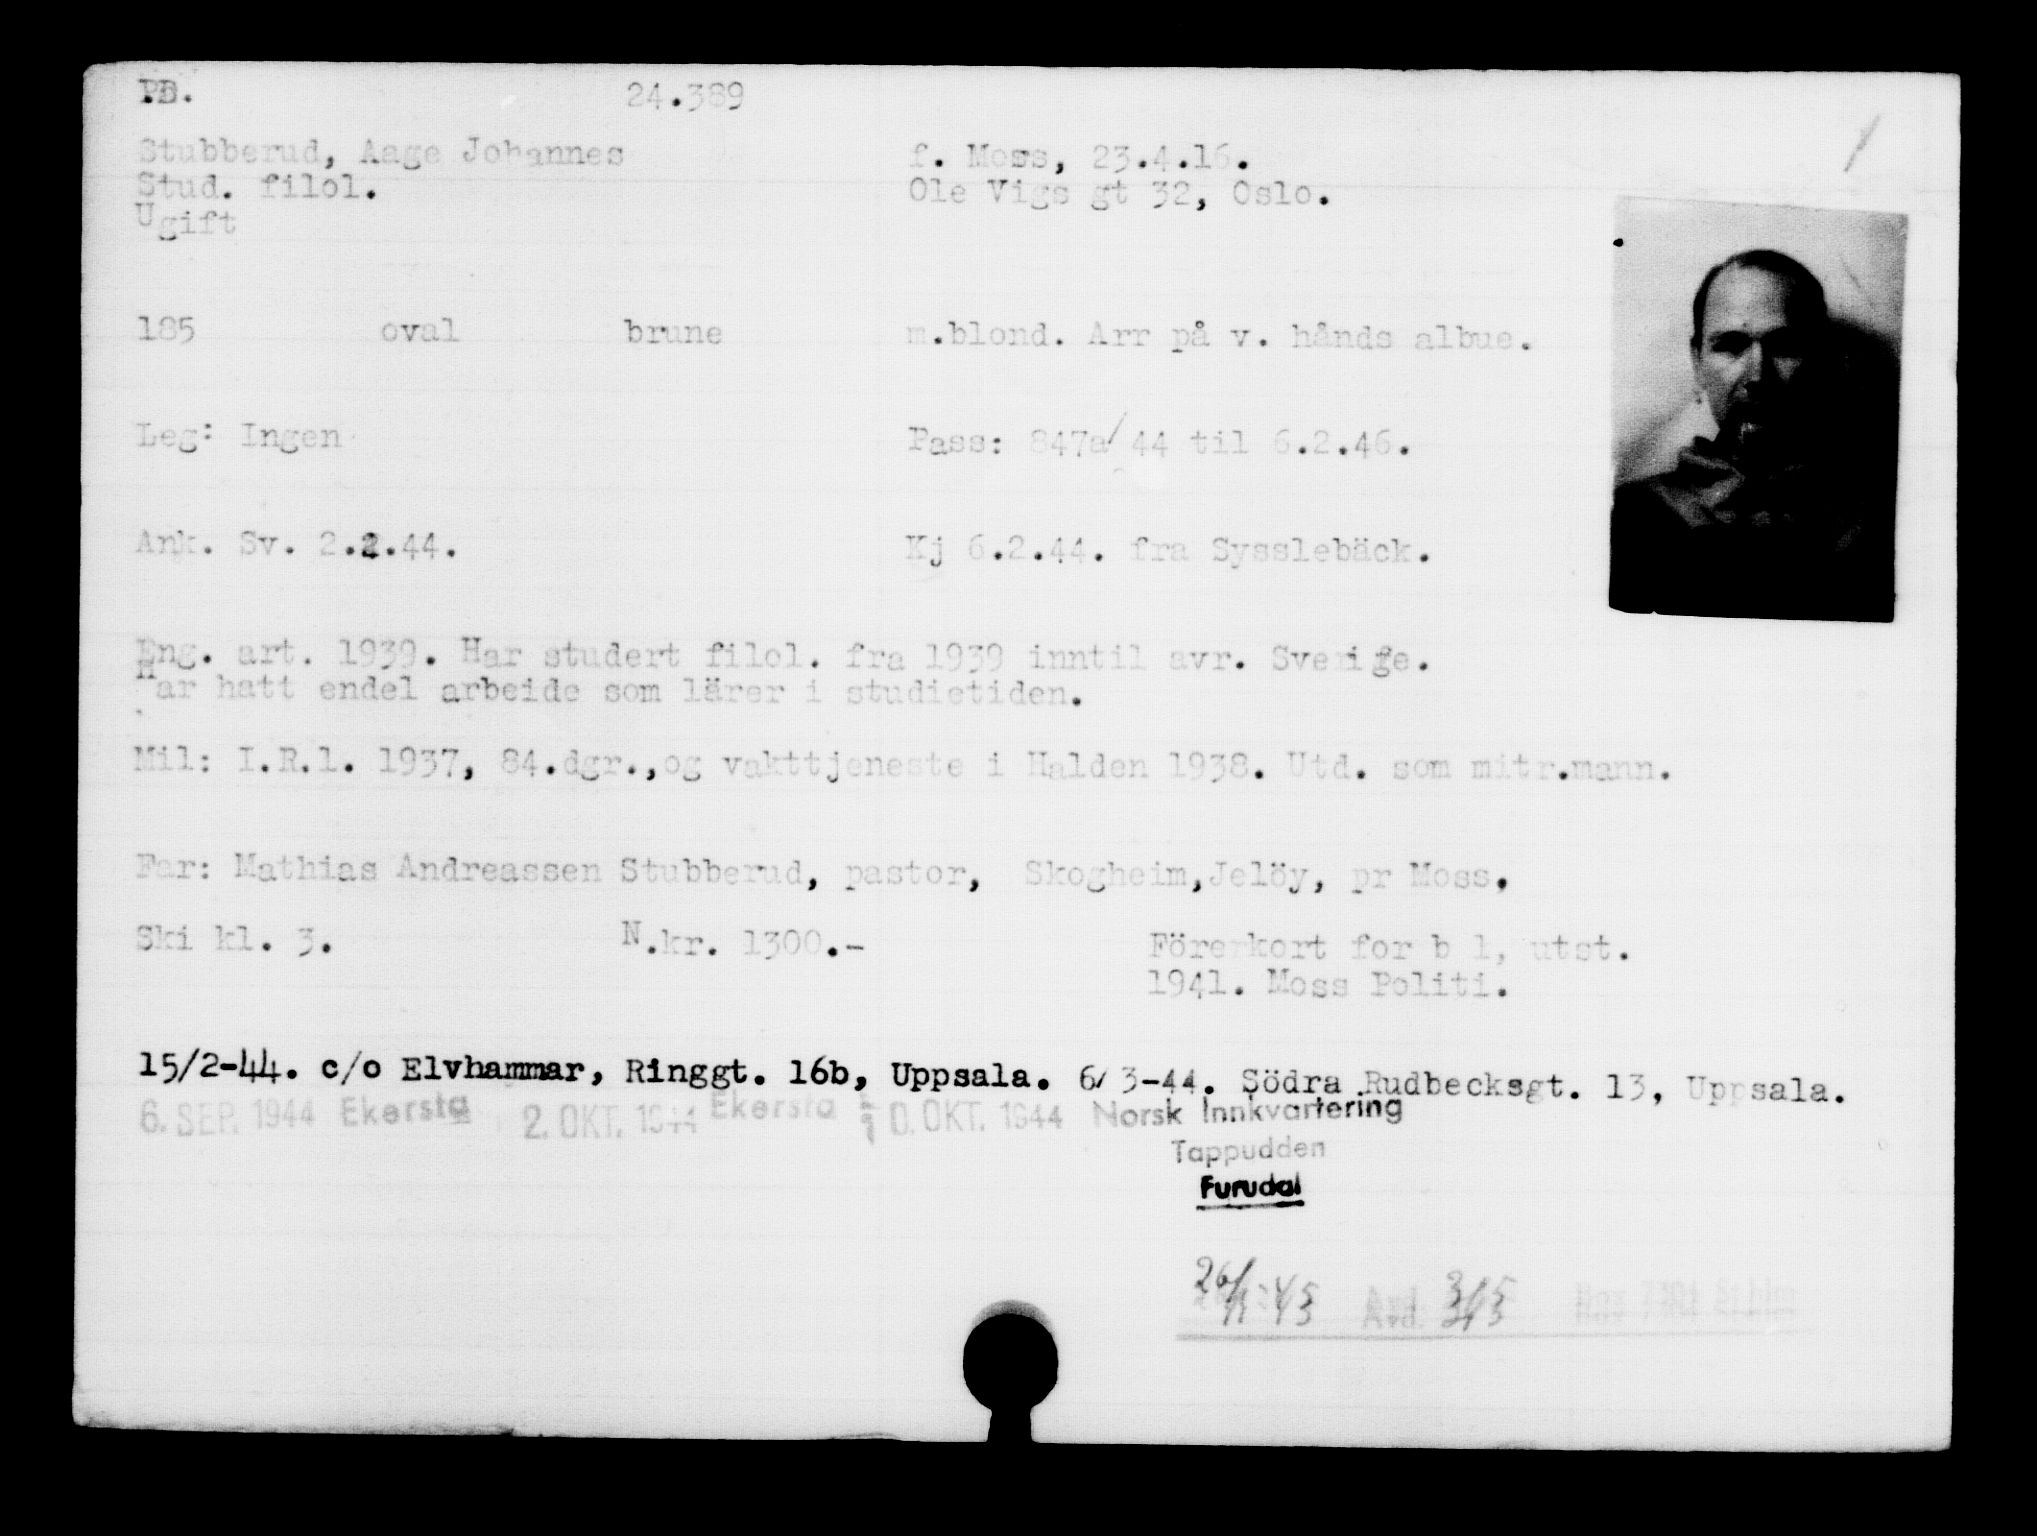 PB. 24.389
Stubberud, Aage Johannes f. Moss, 23.4.16.
Stud. filol. Ole Vigs gt 32, Oslo.
Ugift
185 oval brune m.blond. Arr på v. hånds albue.
Leg: Ingen Pass: 847a/44 til 6.2.46.
Ank. Sv. 2.2.44. Kj 6.2.44. fra Sysslebäck.
Eng. art. 1939. Har studert filol. fra 1939 inntil avr. Sverige.
Har hatt endel arbeide som lärer i studietiden.
Mil: I.R.1. 1937, 84.dgr.,og vakttjeneste i Halden 1938. Utd. som mitr.mann.
Far: Mathias Andreassen Stubberud, pastor, Skogheim,Jelöy, pr Moss.
Ski kl. 3. N.kr. 1300.- Förerkort for b l, utst.
1941. Moss Politi.
15/2-44. c/o Elvhammar, Ringgt. 16b, Uppsala. 6/3-44. Södra Rudbecksgt. 13, Uppsala.
6. SEP. 1944 Ekersta 2. OKT. 1944 Ekersta 0. OKT. 1944 Norsk Innkvartering
Tappudden
Furudal
45 Avd.